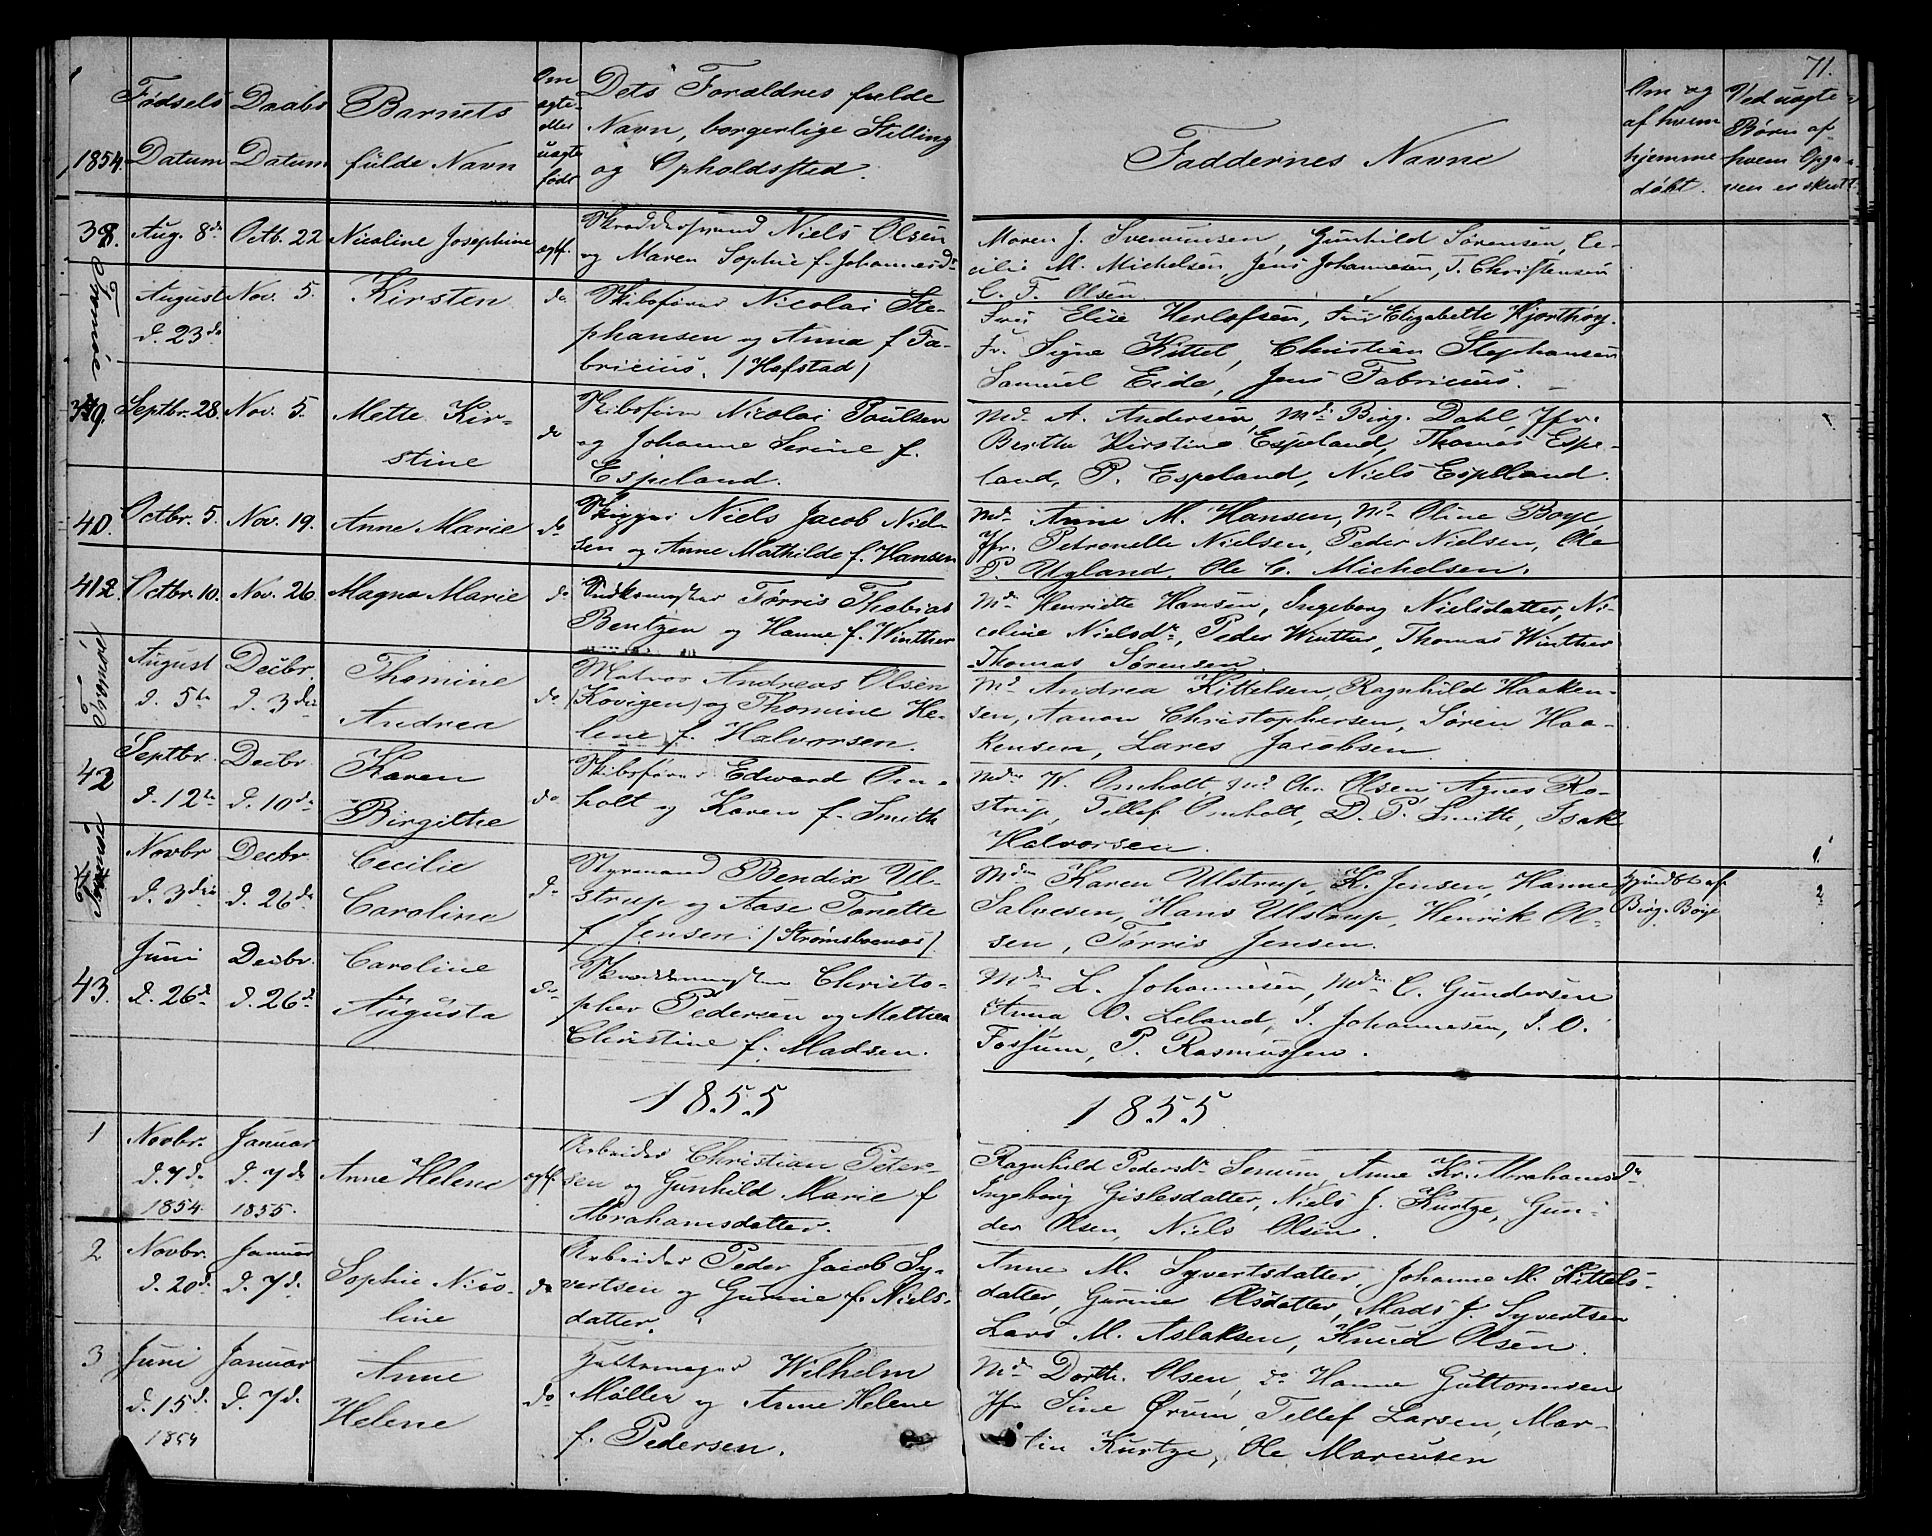 71.
1854. Fødsels Datum
Daabs Datum
Barnets fulde Navn
Om ægte eller uægte født
Dets Forældres fulde
Navn, borgerlige Stilling
og Opholdssted.
Faddernes Navne
Om og af hvem hjemme døbt.
Ved uægte Børn af hvem Opga ven er skeet
38. Aug. 8de Octb. 22 Nicoline Josephine ægtf. Skræddersvend Niels Olsen
og Maren Sophie f. Johannesdr
Maren J. Svenumsen, Gunhild Sørensen, Ce-
cilie M. Michelsen, Jens Johannesen, T. Christensen
C. F. Olsen
Tromøe
August d. 23de Nov. 5. Kirsten do Skibsfører Nicolai Ste-
phansen og Anna f. Fa-
bricius. (Hofstad)
Fru Elise Herlofsen, Fru Elizabeth Hjorthøy.
Fr. Signe Kittel, Christian Stephansen
Samuel Eide, Jens Fabricius.
39. Septbr. 28. Nov. 5. Mette Kir-
stine do Skibsfører Nicolai Poulsen
og Johanne Serine f.
Espeland.
Md. A. Andersen, Md. Birg. Dahl, Jfr.
Berthe Kirstine Espeland, Thomas Espe-
land, P. Espeland, Niels Espeland.
40. Octbr. 5. Nov. 19. Anne Marie do Skipper Niels Jacob Niel-
sen og Anne Mathilde f. Hansen
Md. Anne M. Hansen, Md. Oline Boye
Jfr. Petronelle Nielsen, Peder Nielsen, Ole
P. Ugland, Ole C. Michelsen.
41. Octbr. 10. Nov. 26. Magna Marie do Tørris Thobias
Bentzen og Hanne f. Winther
Md. Henriette Hansen, Ingeborg Nielsdatter, Ni-
coline Nielsdr., Peder Winther, Thomas Winther
Thomas Sørensen
August d. 5te Decbr. d. 3die Thomine
Andrea do Matros Andreas Olsen
(Kovigen) og Thomine He-
lene f. Halvorsen.
Md. Andrea Kittelsen, Ragnhild Haaken-
sen, Aanon Christophersen, Søren Haa-
kensen, Lares Jacobsen
42 Septbr. d. 12te Decbr. d. 10de Karen
Birgithe do Skibsfører Edward Om-
holt og Karen f. Smith
Mdm W. Omholt, Md. Chr. Olsen, Agnes Ro-
strup, Tellef Omholt, D. P. Smith, Isak
Halvorsen.
Novbr d. 3die Decbr. d. 26de Cecilie
Caroline do Styrmand Bendix Ul-
strup og Aase Tonette
f. Jensen. (Strømsbuenæs)
Mdm Karen Ulstrup, K. Jensen, Hanne
Salvesen, Hans Ulstrup, Henrik Ol-
sen, Tørris Jensen.
hjemdbt af
Birg. Boye
1.
2
43. Juni d. 26d. Decbr. d. 26d. Caroline
Augusta do Skræddermester Christo-
pher Pedersen og Mathea
Christine f. Madsen.
Mdm L. Johannesen, Mdm C. Gundersen
Anna O. Leland, I. Johannesen, J. O.
Fossum, P. Rasmussen.
1855
1855
1 Novbr. d. 7d. 1854. Januar d. 7de 1855. Anne Helene ægtf. Arbeider Christian Peter-
sen og Gunhild Marie f.
Abrahamsdatter.
Ragnhild Pedersdr. Senum, Anne Kr. Abrahamsdr.
Ingeborg Gislesdatter, Niels J. Kurtze, Gun-
der Olsen, Niels Olsen.
2 Novbr. d. 20d. Januar d. 7d. Sophie Nico-
line do Arbeider Peder Jacob Sy-
vertsen og Gurine f. Niels-
datter.
Anne M. Syvertsdatter, Johanne M. Kittels-
datter, Gurine Olsdatter, Mads J. Syvertsen
Lars M. Aslaksen, Knud Olsen.
3 Juni d. 15d. 1854 Januar d. 7d. Anne
Helene do Feltmager Wilhelm
Møller og Anne Helene
f. Pedersen.
Md. Dorth. Olsen, do Hanne Guttormsen
Jfr Sine Ørum, Tellef Larsen, Mar-
tin Kurtze, Ole Marcusen